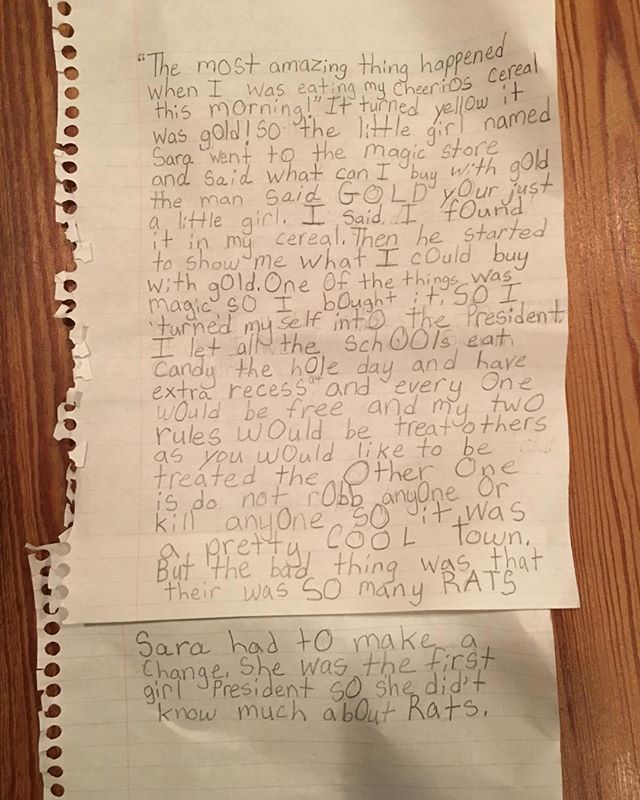 "The most amazing thing happened
when I was eating my Cheerios cereal
this morning!" It turned yellow it
was gold! So the little girl named
Sara went to the magic store
and said what can I buy with gold
the man said GOLD your just
a little girl. I said I found
it in my cereal. Then he started
to show me what I could buy
with gold. One of the things was
magic so I bought it. So I
turned my self into the President.
I let all the schools eat
Candy the hole day and have
extra recess and every one
would be free and my two
rules would be treat others
as you would like to be
treated the other one
is do not robb anyone or
kill anyone so it was
a pretty COOL town.
But the bad thing was that
their was so many RATS
Sara had to make a
Change. She was the first
girl President so she did't
know much about Rats.